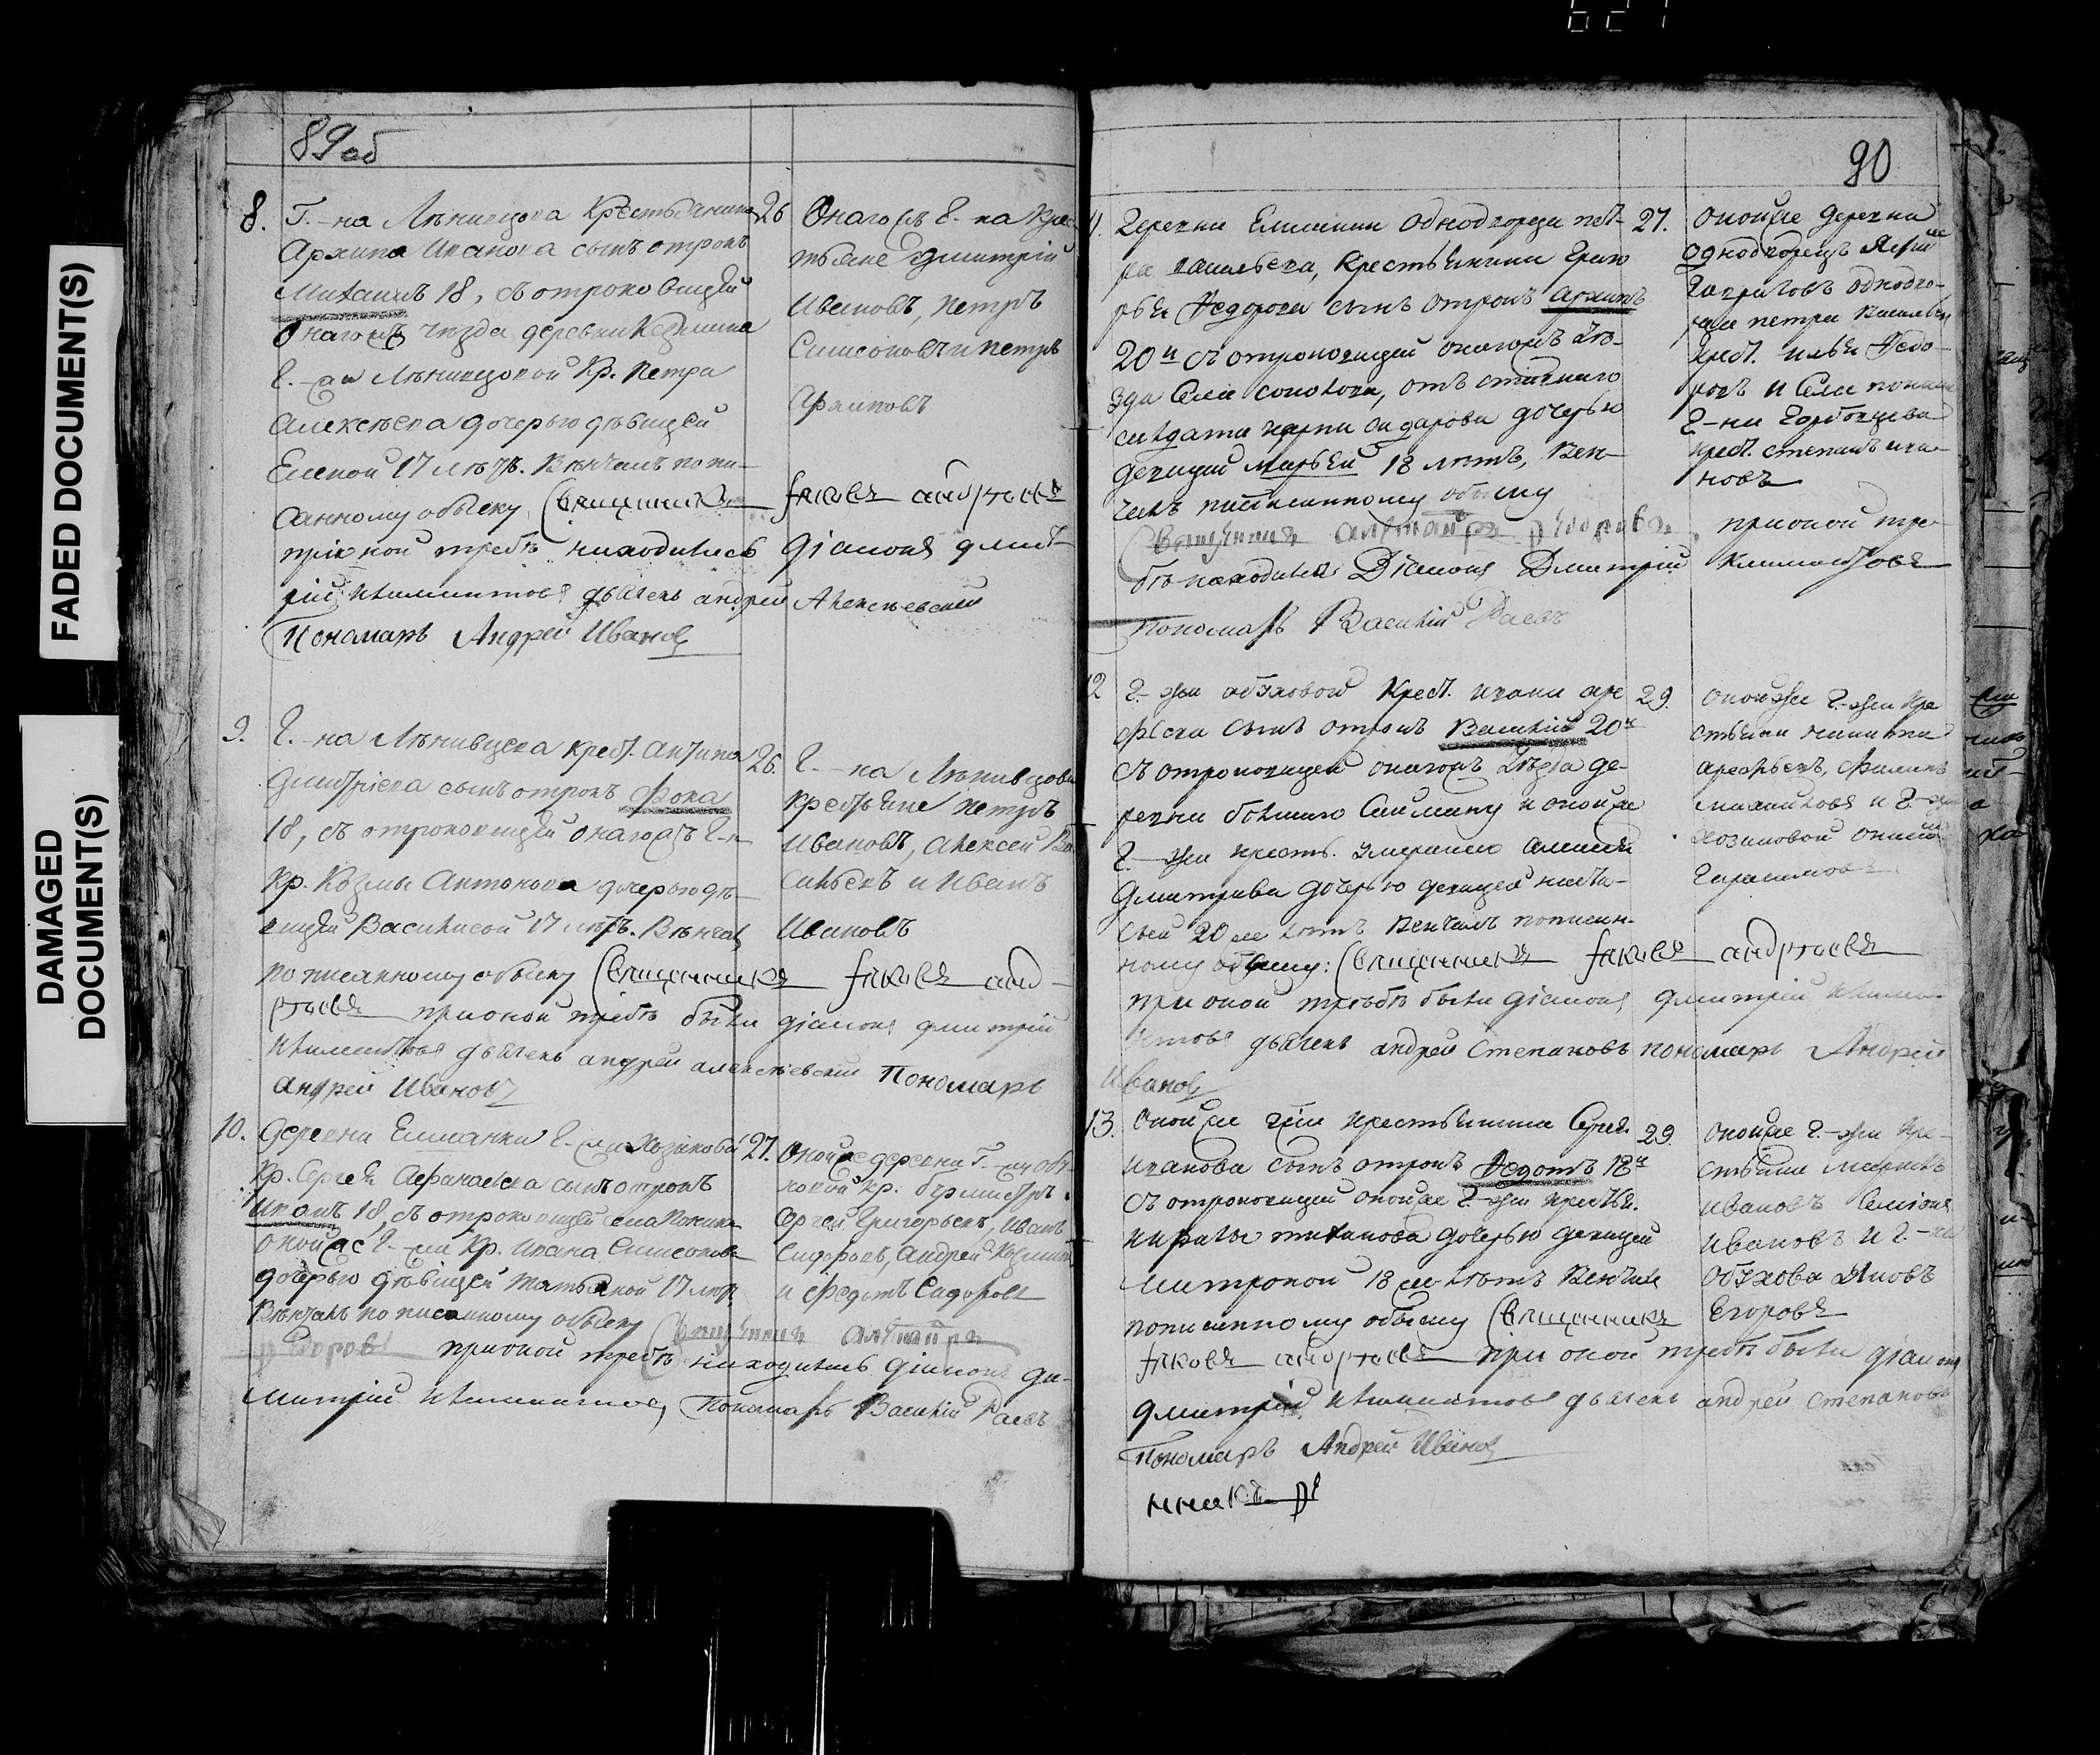 621
FADED DOCUMENT(S)
DAMAGED
DOCUMENT(S)
89 об
8. Г.-на Лѣнивцова Крестьянина
Архипа Иванова сынъ отрокъ
Михаилъ 18, съ отроковицей
онагожъ уезда деревни
Г.-на Лѣнивцовой Кр. Петра
Алексѣева дочерью дѣвицей
Еленой 17 лѣтъ. Вѣнчалъ по пи-
санному обыску Священникъ Іаковъ Андреевъ
при оной требѣ находились діаконъ дмит-
рій Климентовъ дьячекъ андрей Алексѣевскій
Пономарь Андрей Ивановъ
26 Онагожъ Г.-на Крес-
тьяне Дмитрій
Ивановъ, Петръ
Симеоновъ и Петръ
Архиповъ
9. Г.-на Лѣнивцева крест. Антипа
Дмитріева сынъ отрокъ Фока
18, съ отроковицей онагожъ Г.-на
Кр. Козмы Антонова дочерью дѣ-
вицей Василисой 17 лѣтъ. Вѣнчалъ
по писанному обыску Священникъ Іаковъ Анд-
реевъ при оной требѣ были діаконъ дмитрій
Климентовъ дьячекъ андрей алексѣевскій Пономарь
Андрей Ивановъ
26. Г.-на Лѣнивцова
Крестьяне Петръ
Ивановъ, Алексей Ва-
сильевъ и Иванъ
Ивановъ
10. Деревни Елшанки Г.-жи Хозиковой
Кр. Сергея Афанасьева сынъ отрокъ
Иванъ 18, съ отроковицей села
оной же Г.-жи Кр. Ивана Симеонова
дочерью дѣвицей Татьяной 17 лѣтъ.
Вѣнчалъ по писанному обыску Священникъ
при оной требѣ находились діаконъ Ди-
митрій Климентовъ, Пономарь Василій Раевъ
27. Оной же деревни Г.-жи Обу-
ховой кр. бурмистръ
Сергей Григорьевъ, Иванъ
Сидоровъ, Андрей Кузмин
и Федотъ Сидоровъ
90
11. Деревни Елшанки Однодворца Пет-
ра Васильева, Крестьянина Григо-
рья Федорова сынъ отрокъ Архипъ
20и съ отроковицей онагожъ уѣ-
зда Села Соколова, отъ
салдата Сидорова дочерью
девицей Марьей 18 лѣтъ, Вен-
чалъ по писанному обыску
Священникъ при оной тре-
бѣ находились Діаконъ Дмитрій Климентовъ
Пономарь Василій Раевъ
27. Оной же деревни
Однодворецъ
Гавриловъ однодво-
рца Петра Васильева
крест. Илья Федо-
ровъ и Села
Г-на
крест. Степанъ Ива-
новъ
12 Г-жи Обуховой Крест. Ивана Аре-
фьева сынъ отрокъ Василій 20и
съ отроковицей онагожъ Уѣзда де-
ревни и оной же
Г-жи крест. умершаго Алексея
Дмитриева дочерью девицей Наста-
сьей 20 лѣтъ Венчалъ по писан-
ному обыску: Священникъ Іаковъ Андреевъ
при оной требѣ были діаконъ дмитрій Климе-
нтовъ дьячекъ андрей Степановъ пономарь Андрей
Ивановъ
29. Оной же Г-жи кре-
стьяне Никита
Арефьевъ, Филипъ
Михайловъ и Г-жи
Хозиковой
Герасимовъ
13. Оной же Г-жи крестьянина Сергея
Иванова сынъ отрокъ Федотъ 18и
съ отроковицей оной же Г-жи крестья.
Тиханова дочерью девицей
Митроной 18 лѣтъ Венчалъ
по писанному обыску Священникъ
Іаковъ Андреевъ при оной требѣ были діаконъ
дмитрій Климентовъ дьячекъ андрей Степановъ
Пономарь Андрей Ивановъ
29. Оной же Г-жи кре-
стьяне Марк
Ивановъ
Ивановъ и Г-жи
Обухова Яковъ
Егоровъ